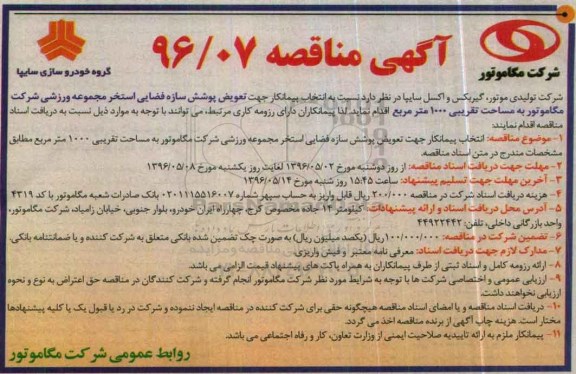 آگهی مناقصه ۹۶/۰۷
گروه خودرو سازی سایپا
شرکت مگاموتور
شرکت تولیدی موتور، گیربکس و اکسل سایپا در نظر دارد نسبت به انتخاب پیمانکار جهت تعویض پوشش سازه فضایی استخر مجموعه ورزشی شرکت
مگاموتور به مساحت تقریبی ۱۰۰۰ متر مربع اقدام نماید لذا پیمانکاران دارای رزومه کاری مرتبط، می توانند با توجه به موارد ذیل نسبت به دریافت اسناد
مناقصه اقدام نمایند:
۱- موضوع مناقصه: انتخاب پیمانکار جهت تعویض پوشش سازه فضایی استخر مجموعه ورزشی شرکت مگاموتور به مساحت تقریبی ۱۰۰۰ متر مربع مطابق
مشخصات مندرج در متن اسناد مناقصه.
۲- مهلت جهت دریافت اسناد مناقصه: از روز دوشنبه مورخ ۱۳۹۶/۰۵/۰۲ لغایت روز یکشنبه مورخ ۱۳۹۶/۰۵/۰۸
۳- آخرین مهلت جهت تسلیم پیشنهاد: ساعت ۱۵:۴۵ روز شنبه مورخ ۱۳۹۶/۰۵/۱۴
۴- هزینه دریافت اسناد شرکت در مناقصه ۲۰۰/۰۰۰ ریال قابل واریز به حساب سپهر شماره ۰۲۰۱۱۱۵۵۱۶۰۰۷ بانک صادرات شعبه مگاموتور با کد ۴۳۱۹
۵- آدرس محل دریافت اسناد و ارائه پیشنهادات: کیلومتر ۱۴ جاده مخصوص کرج، چهارراه ایران خودرو، بلوار جنوبی، خیابان زامیاد، شرکت مگاموتور،
واحد بازرگانی داخلی، تلفن: ۴۴۹۲۲۴۴۲
۶- تضمین شرکت در مناقصه: ۱۰۰/۰۰۰/۰۰۰ ریال (یکصد میلیون ریال) به صورت چک تضمین شده بانکی متعلق به شرکت کننده و یا ضمانتنامه بانکی.
۷- مدارک لازم جهت دریافت اسناد: معرفی نامه معتبر و فیش واریزی.
۸- ارائه رزومه کامل و اسناد ثبتی از طرف پیمانکاران به همراه پاکت های پیشنهاد قیمت الزامی می باشد.
۹- ارزیابی عمومی و اختصاصی شرکت ها با توجه به شرایط مورد نظر شرکت مگاموتور انجام گرفته و شرکت کنندگان در مناقصه حق اعتراض به نوع و نحوه
ارزیابی نخواهند داشت.
۱۰- دریافت اسناد مناقصه و یا امضای اسناد مناقصه هیچگونه حقی برای شرکت کننده در مناقصه ایجاد ننموده و شرکت در رد یا قبول یک یا کلیه پیشنهادها
مختار است. هزینه چاپ آگهی از برنده مناقصه اخذ می گردد.
۱۱- پیمانکار ملزم به ارائه تاییدیه صلاحیت ایمنی از وزارت تعاون، کار و رفاه اجتماعی می باشد.
روابط عمومی شرکت مگاموتور